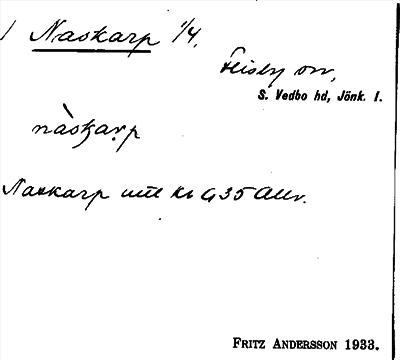 / Naskarp 1/4.
Flisby sn,
S. Vedbo hd, Jönk. l.
nàskarp
Naskarp utt kb G 35 Allv.
FRITZ ANDERSSON 1933.